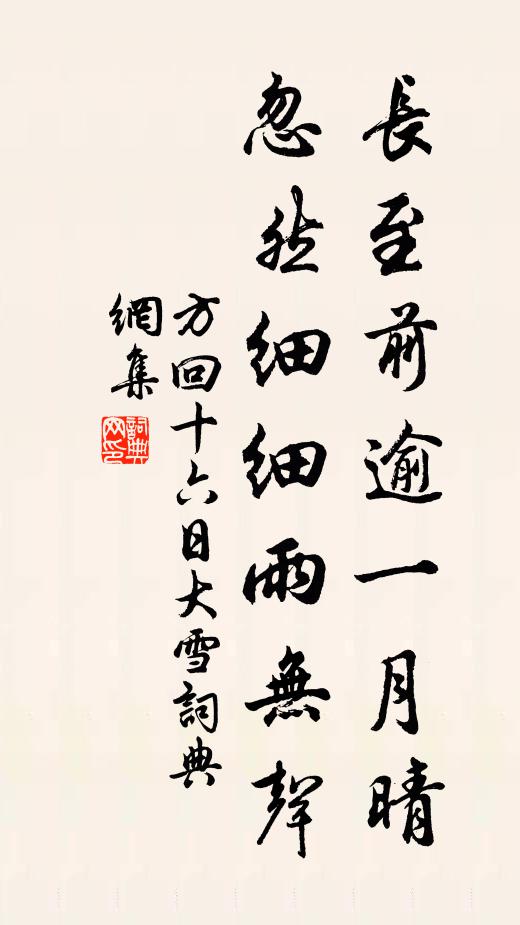 長至前逾一月晴
忽然細細雨無聲
方回十六日大雪詞典
網集
詞典
网印